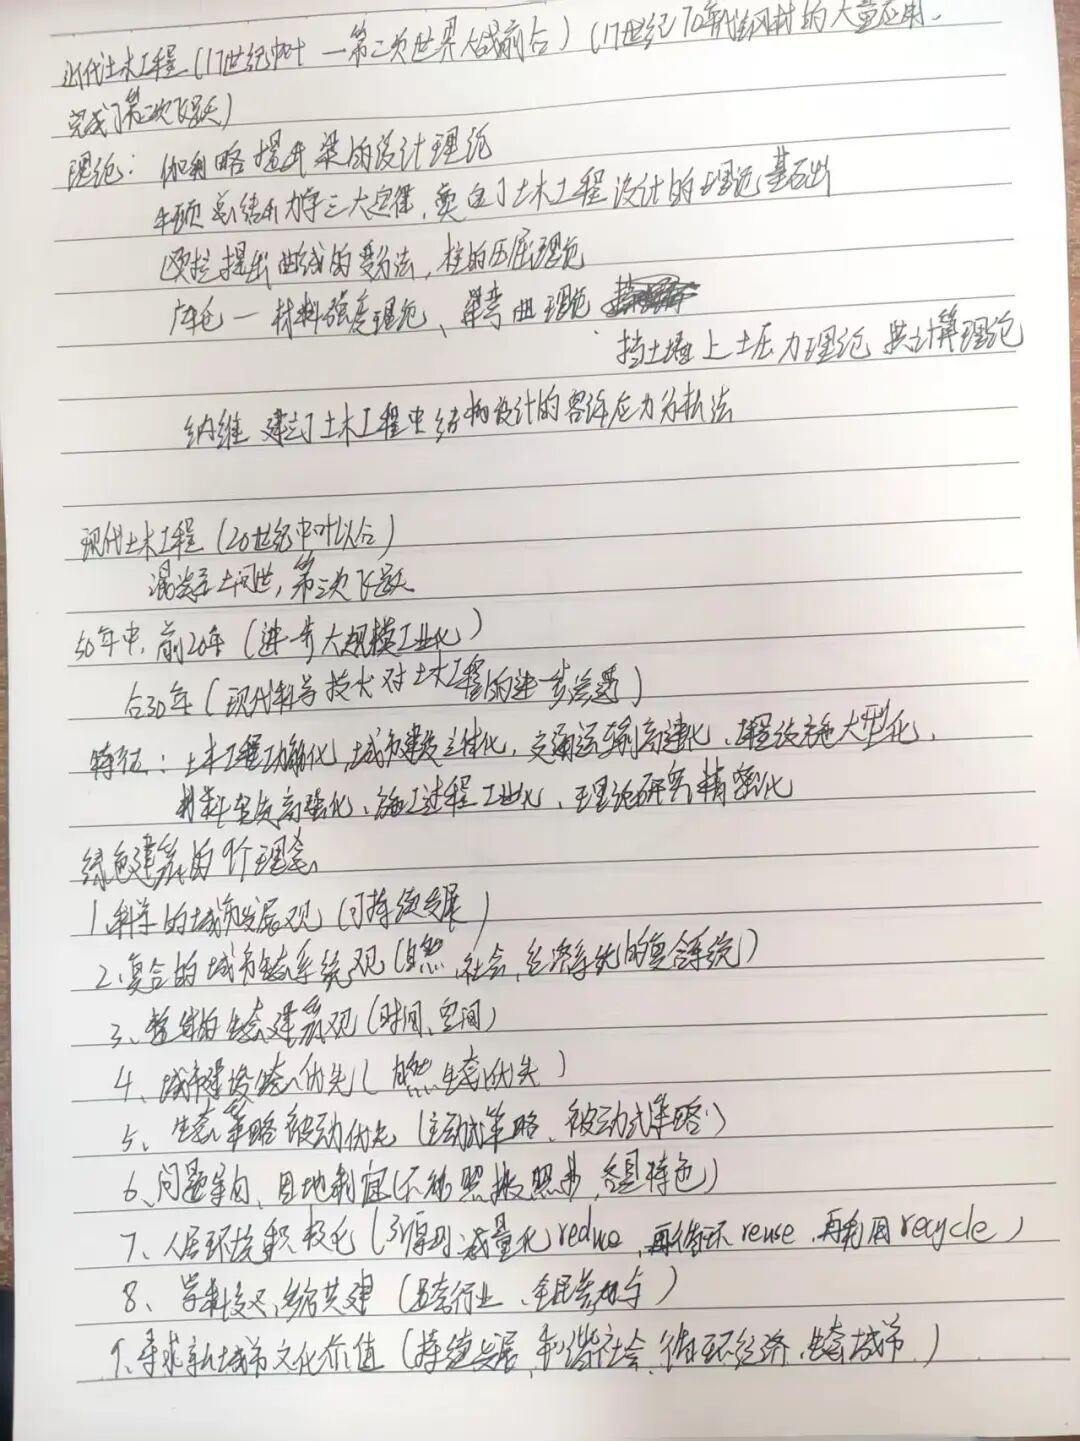 近代土木工程(17世纪中叶—第二次世界大战前后)(17世纪70年代钢材的大量应用,
完成了第二次飞跃)
理论: 伽利略提出梁的设计理论
牛顿总结力学三大定律,奠定了土木工程设计的理论基础
欧拉提出曲线的变分法,柱的压屈理论
库仑—材料强度理论、梁弯曲理论
挡土墙上土压力理论 其计算理论
纳维 建立了土木工程中结构设计的容许应力分析法
现代土木工程(20世纪中叶以后)
混凝土问世,第三次飞跃
50年中,前20年(进一步大规模工业化)
后30年(现代科学技术对土木工程的进一步渗透)
特征: 土木工程功能化,城市建设立体化,交通运输高速化、工程设施大型化,
材料轻质高强化、施工过程工业化、理论研究精密化
绿色建筑的9个理念
1、科学的城市发展观(可持续发展)
2、复合的城市生态系统观(自然、社会、经济系统的复合系统)
3、整体的生态建筑观(时间、空间)
4、城市建设生态优先(自然生态优先)
5、生态策略被动优先(主动式策略、被动式策略)
6、问题导向、因地制宜(不能照搬照抄,各具特色)
7、人居环境积极 (3R原则 减量化reduce,再循环reuse,再利用recycle)
8、学科交叉,综合共建(跨行业、全民参与)
9、寻求新城市文化价值(持续发展,和谐社会,循环经济,生态城市)